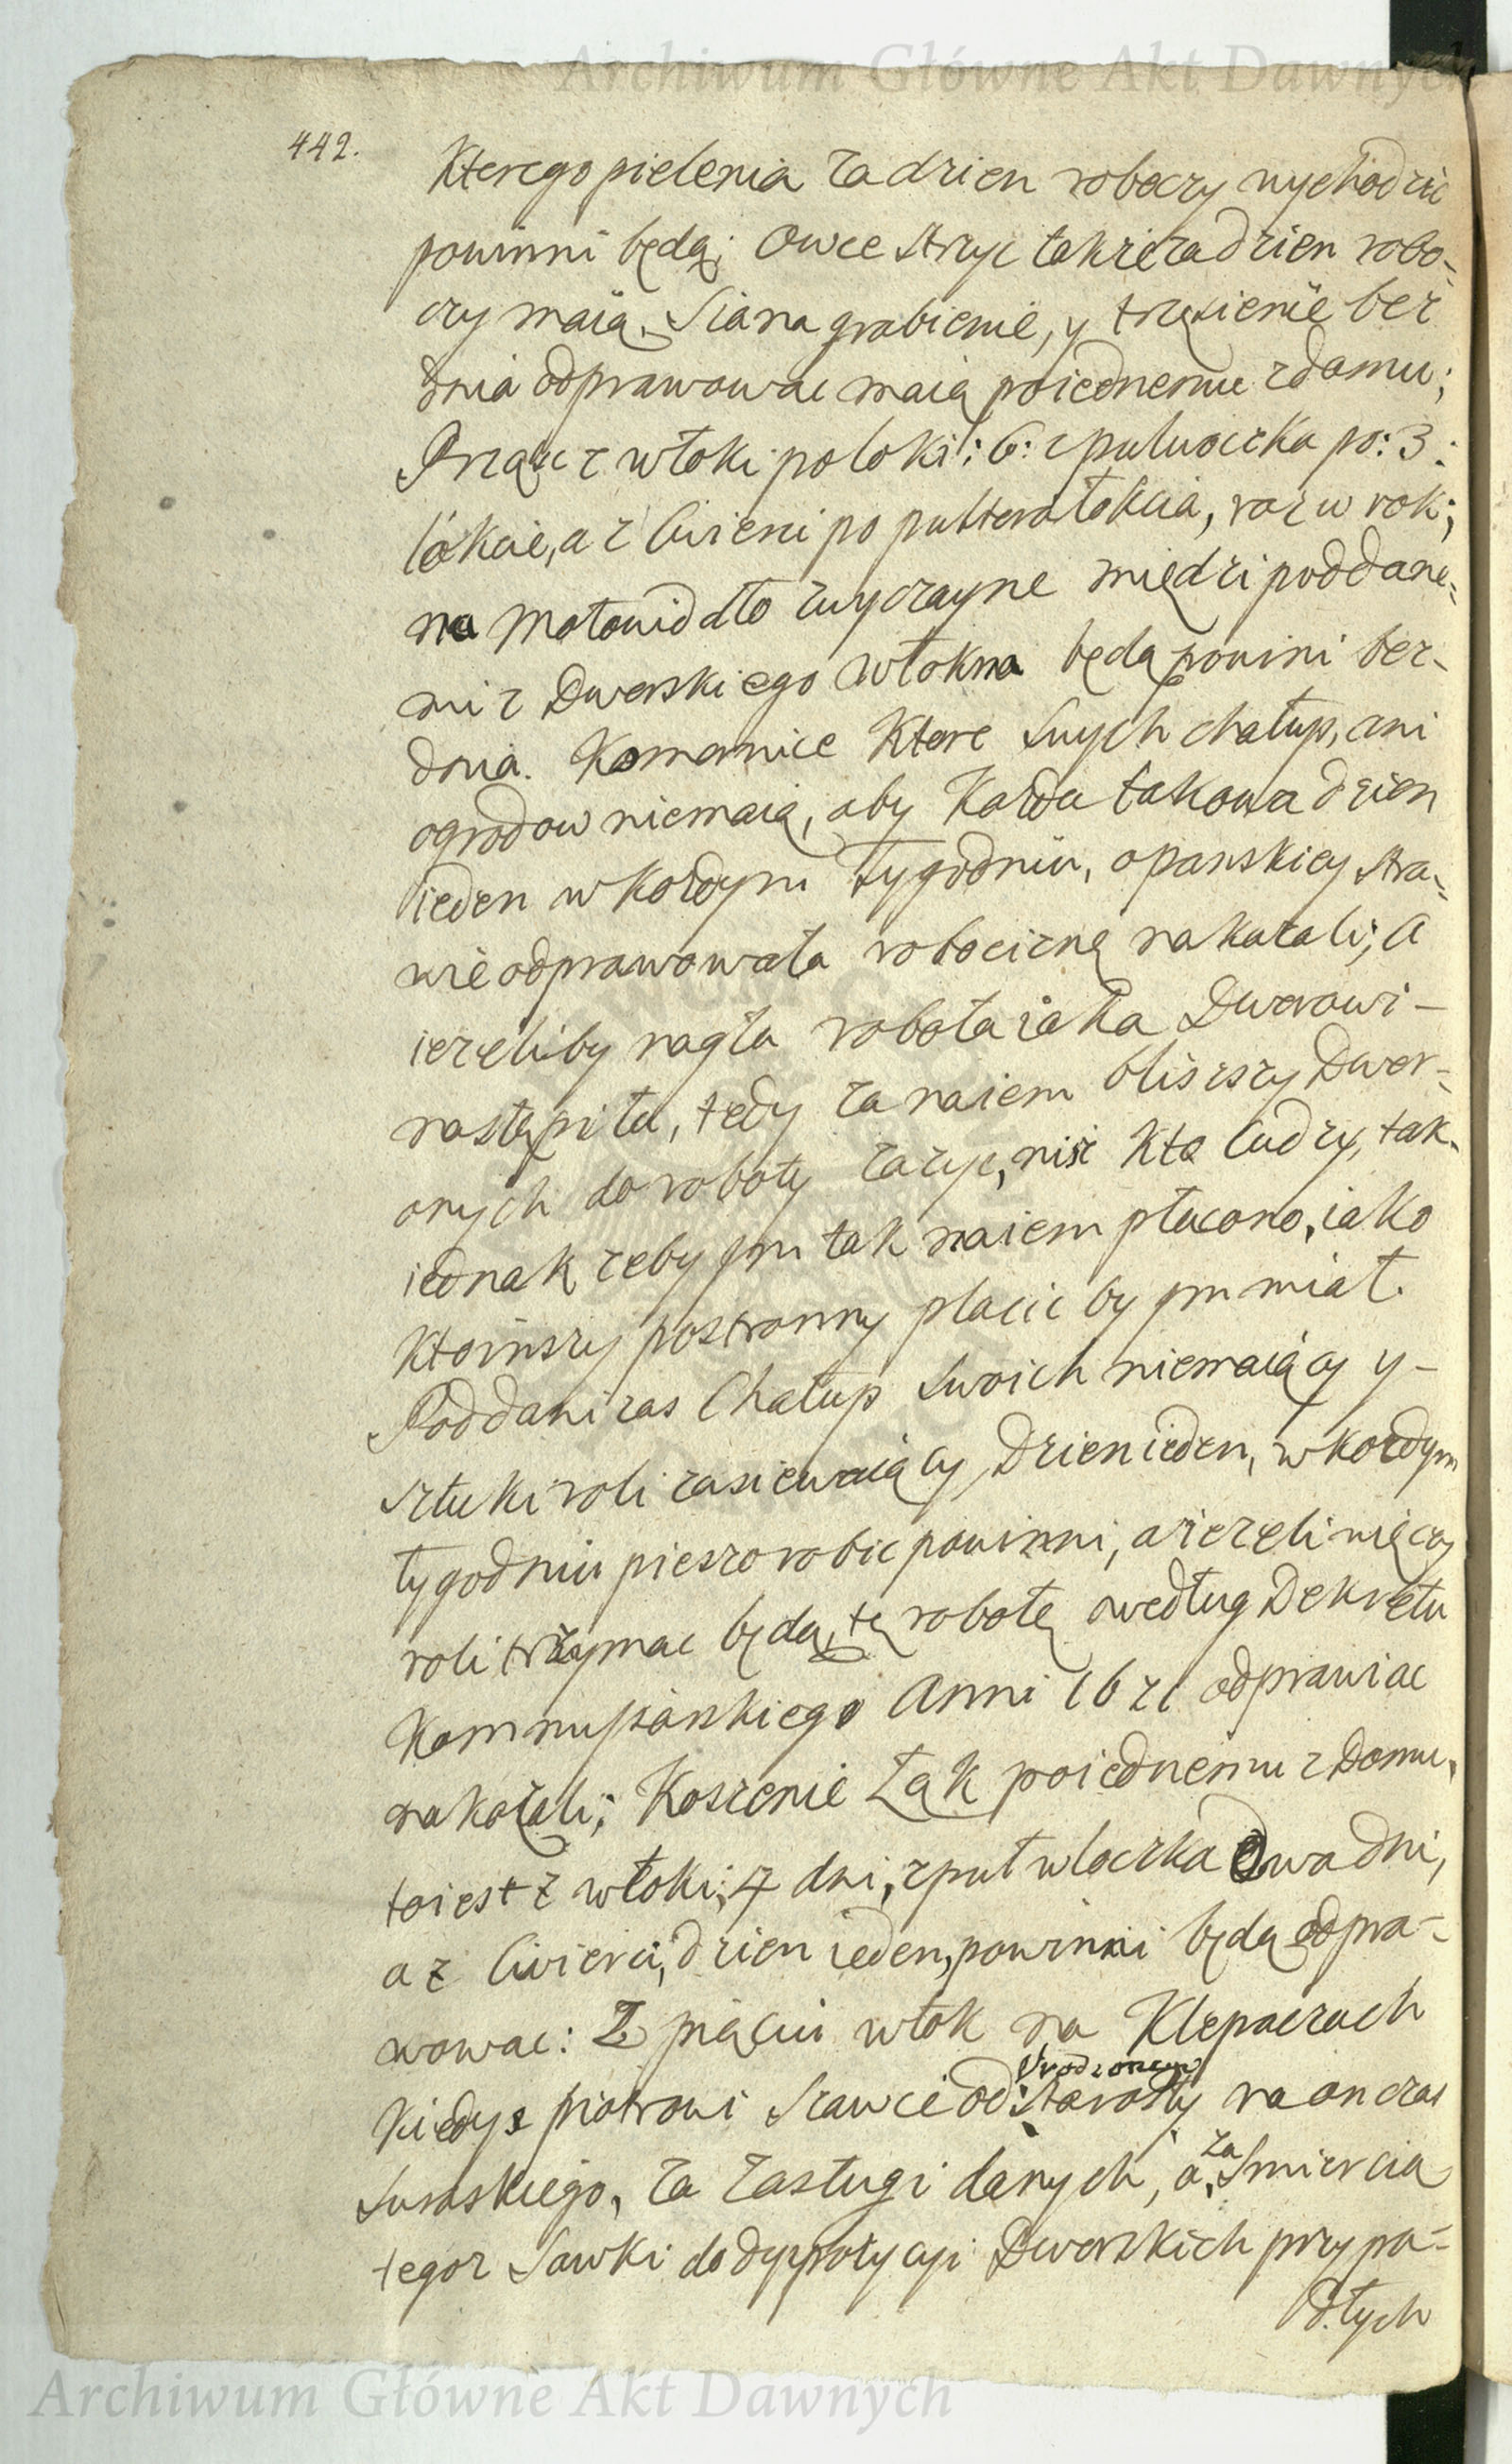 Archiwum Główne Akt Dawnych
442.
Ktorego pielenia za dzien roboczy wychodzic
powinni będą; Owce strzyc takze za dzien robo-
czy maią. Siana grabienie, y trzęsienie bez
dnia odprawowac maią poiednemu z domu;
Prząsc z włoki po łokci: 6: z pułwoczka po: 3:
łokcie, a z Cwierci po pułtora łokcia, raz w rok;
na Motowidło zwyczayne między poddane-
mi z Dworskiego włokna będą powini bez-
dnia. Komornice Ktore swych chałup, ani
ogrodow niemaią, aby Kozda takowa dzien
ieden w kozdym Tygodniu, o panskiey stra-
wie odprawowała robociznę nakazali; A
iezeliby nagła robota iaka Dworowi-
nastąpiła, tedy za naiem bliszszy Dwor-
onych do roboty zazyc, nisz kto Cudzy, tak-
iednak zeby im tak naiem płacono, iako
Ktoinszy postronny placic by im miał.
Poddani zas Chałup swoich niemaiący y-
sztuki roli zasiewaiący, Dzien ieden, w kozdym
tygodniu pieszo robic powinni, a iezeli więcey
roli trzymac będą, tę robotę według Dekretu
Kommissarskiego Anni 1621 odprawiac
nakazali; Koszenie Łąk poiednemu z Domu,
toiest z włoki; 4 dni, z puł wloczka Dwa dni,
a z Cwierci, dzien ieden, powinni będą odpra-
wowac: Z pięciu włok na Klepaczach
Kiedys piotrowi Sawce od Urodzonego Starosty na on czas
Suraskiego, za zasługi danych, a za smiercią
tegoz Sawki do dyspozycyi Dworskich przypa-
dłych
Archiwum Główne Akt Dawnych